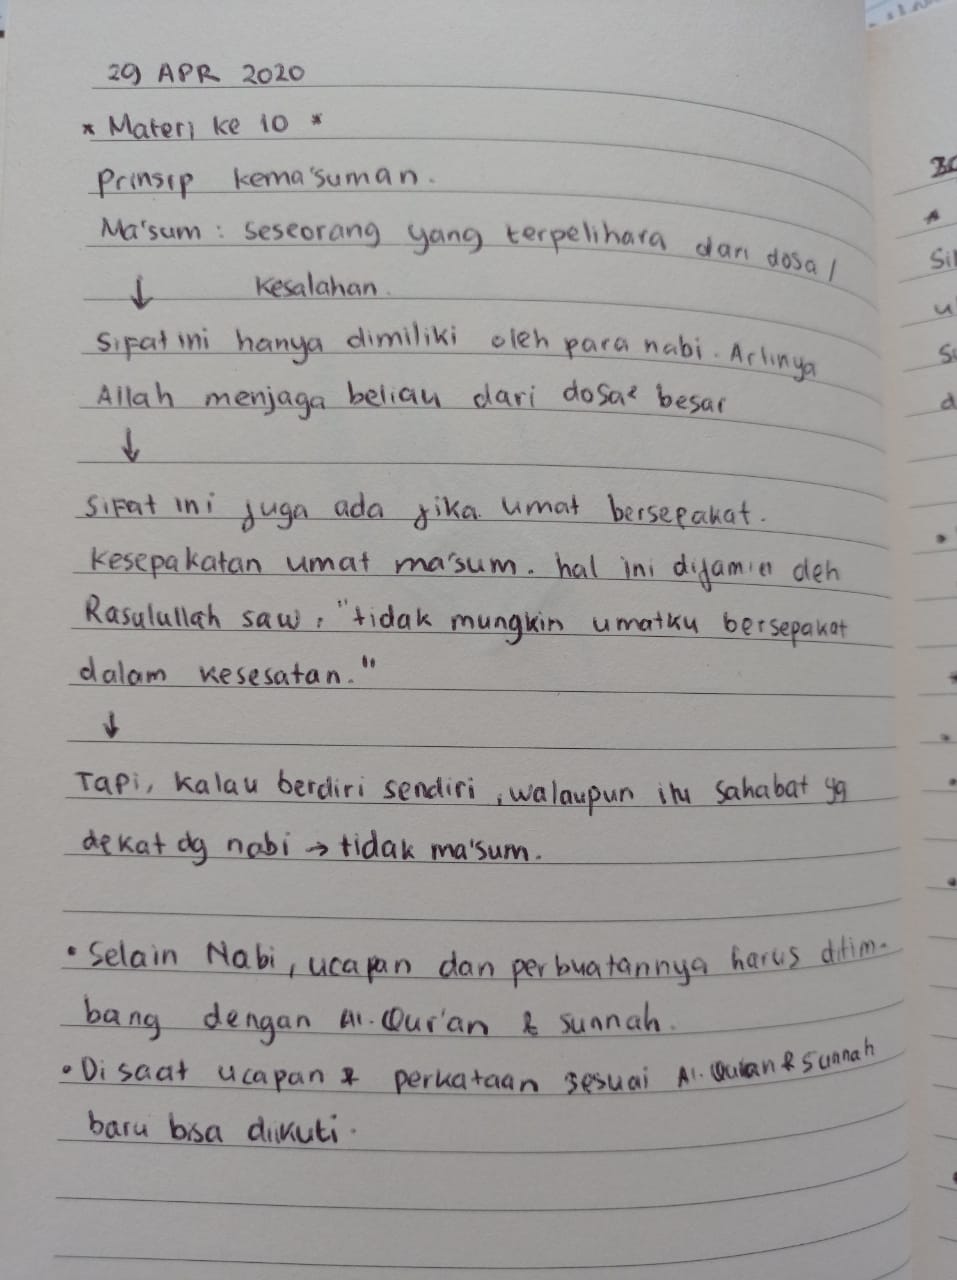 29 APR 2020
* Materi ke 10 *
Prinsip kema'suman.
Ma'sum : seseorang yang terpelihara dari dosa /
↓ kesalahan.
Sifat ini hanya dimiliki oleh para nabi. Artinya
Allah menjaga beliau dari dosa² besar
↓
Sifat ini juga ada jika umat bersepakat.
Kesepakatan umat ma'sum. hal ini dijamin oleh
Rasulullah saw, "tidak mungkin umatku bersepakat
dalam kesesatan."
↓
Tapi, kalau berdiri sendiri, walaupun itu sahabat yg
dekat dg nabi → tidak ma'sum.
• Selain Nabi, ucapan dan perbuatannya harus ditim-
bang dengan Al-Qur'an & sunnah.
• Di saat ucapan & perkataan sesuai Al-Quran & Sunnah
baru bisa diikuti.